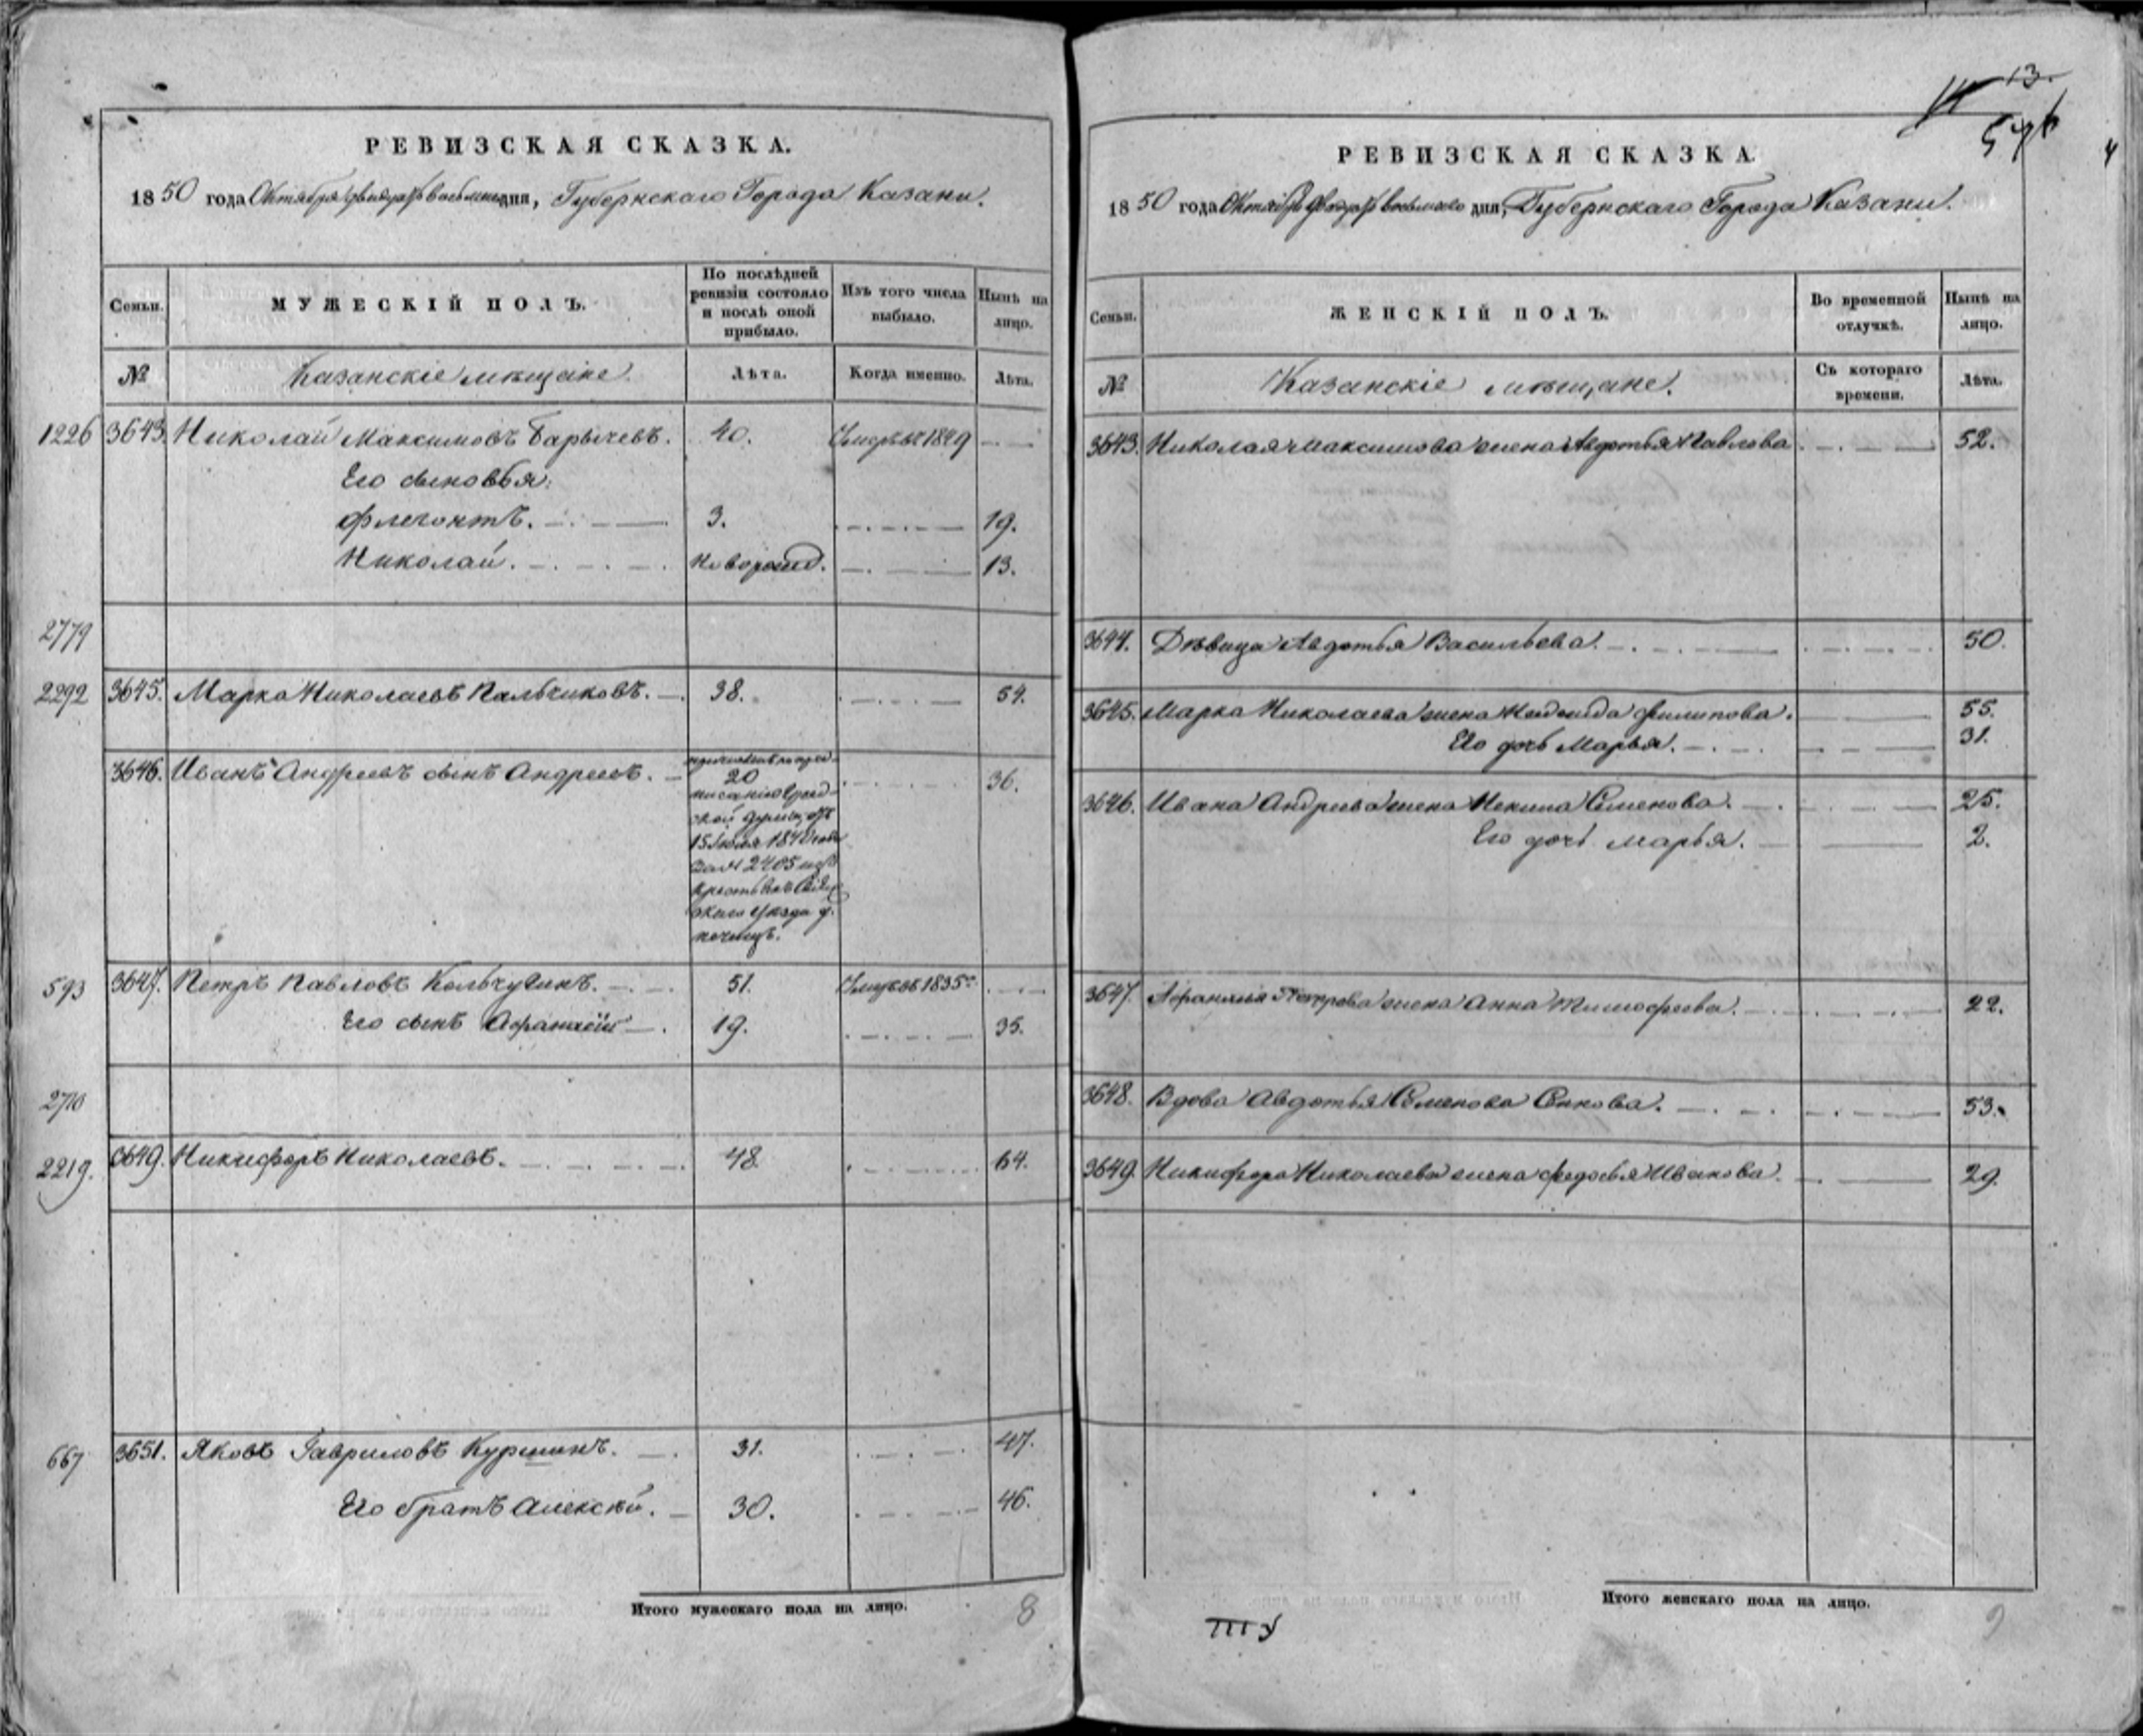 РЕВИЗСКАЯ СКАЗКА.
1850 года Октября двадцать восьмаго дня, Губернскаго Города Казани.
Семьи.
МУЖЕСКІЙ ПОЛЪ.
По послѣдней ревизіи состояло и послѣ оной прибыло.
Изъ того числа выбыло.
Нынѣ на лицо.
№
Казанскіе мѣщане.
Лѣта.
Когда именно.
Лѣта.
1226 3643. Николай Максимовъ Барычевъ. 40. Умеръ въ 1849
Его сыновья:
Флегонтъ. 3. 19.
Николай. новорожд. 13.
2779
2292 3645. Марко Николаевъ Пальчиковъ. 38. 54.
3646. Иванъ Андреевъ сынъ Андреевъ. 20 36.
причисленъ по пред-
писанію Град-
ской Думы, отъ
15 Іюля 1840 года
за № 2405 изъ
крестьянъ Свіяж
скаго уѣзда д.
593 3647. Петръ Павловъ Кольчугинъ. 51. Умеръ въ 1835 г.
Его сынъ Афанасій 19. 35.
2710
2219. 3649. Никифоръ Николаевъ. 48. 64.
667 3651. Яковъ Гавриловъ Куршинъ. 31. 47.
Его братъ Алексѣй. 30. 46.
Итого мужескаго пола на лицо.
8
13.
4
РЕВИЗСКАЯ СКАЗКА.
1850 года Октября двадцать восьмаго дня, Губернскаго Города Казани.
Семьи.
ЖЕНСКІЙ ПОЛЪ.
Во временной отлучкѣ.
Нынѣ на лицо.
№
Казанскіе мѣщане.
Съ котораго времени.
Лѣта.
3643. Николая Максимова жена Авдотья Павлова 52.
3644. Дѣвица Авдотья Васильева. 50.
3645. Марка Николаева жена Надежда Филипова. 55.
Его дочь Марья. 31.
3646. Ивана Андреева жена Семенова. 25.
Его дочь Марья. 2.
3647. Афанасья Петрова жена Анна Тимофеева. 22.
3648. Вдова Авдотья Семенова Сеннова. 53.
3649. Никифора Николаева жена Федосья Иванова. 29.
Итого женскаго пола на лицо.
9